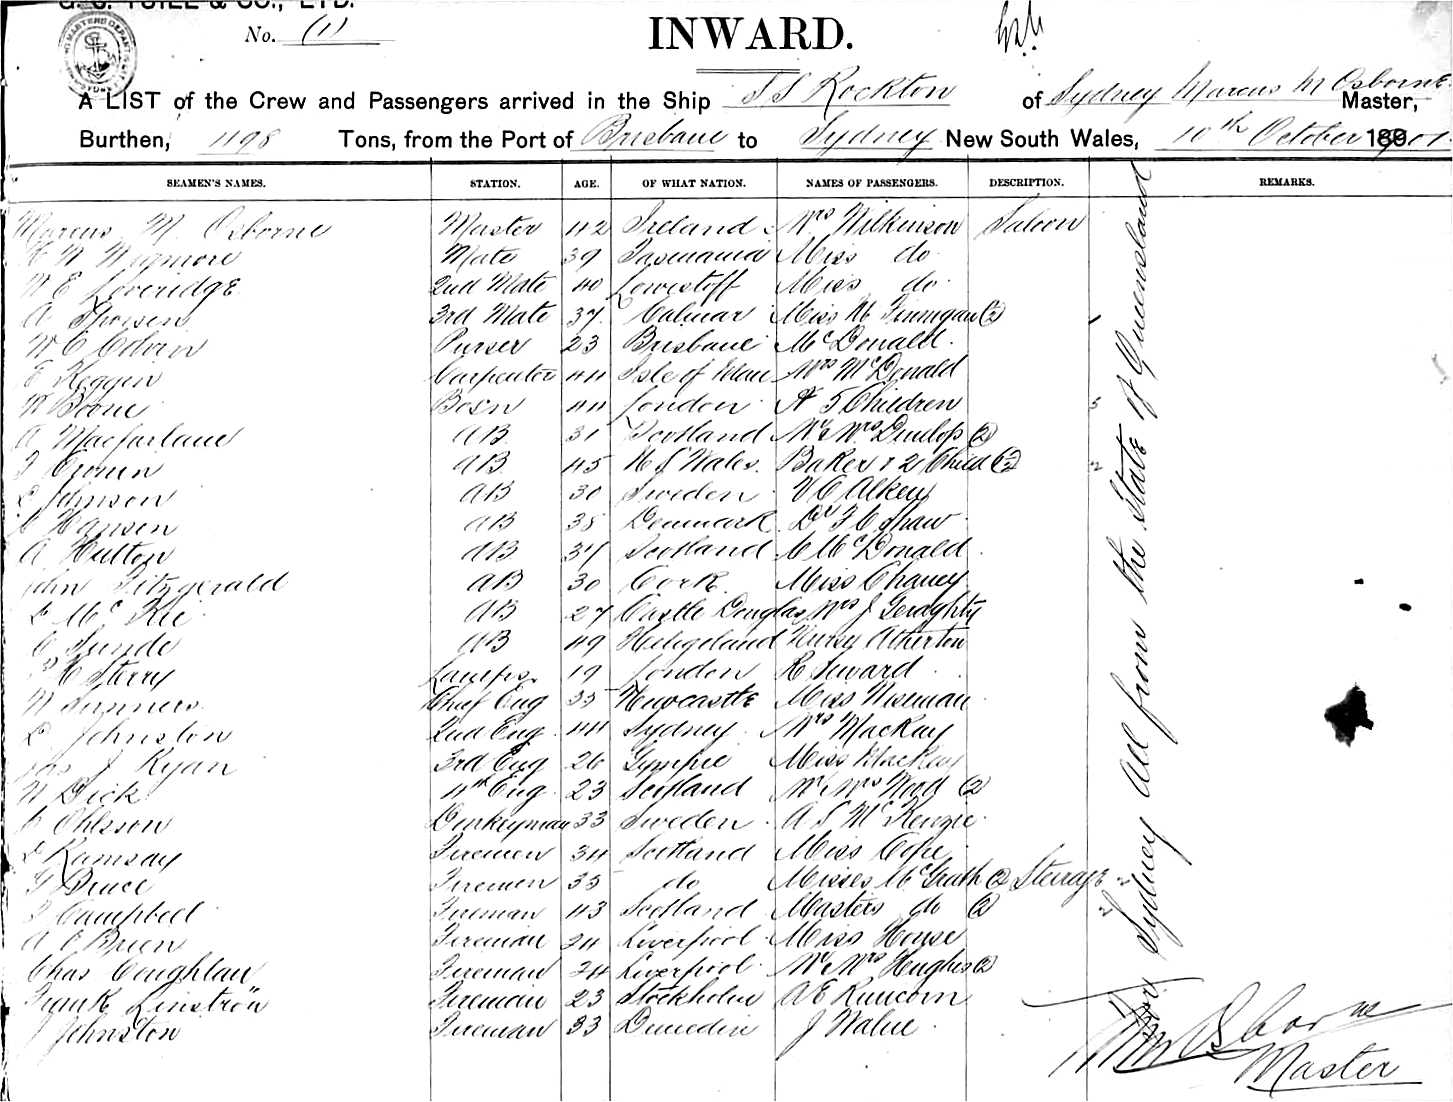 No. (1)
INWARD.
A LIST of the Crew and Passengers arrived in the Ship SS Rockton of Sydney Marcus M Osborne Master,
Burthen, 1198 Tons, from the Port of Brisbane to Sydney New South Wales, 10th October 1901
SEAMEN'S NAMES. STATION. AGE. OF WHAT NATION. NAMES OF PASSENGERS. DESCRIPTION. REMARKS.
Marcus M. Osborne Master 42 Ireland Mrs Wilkinson Saloon
Wigmore Mate 39 Tasmania Miss do
W E Loveridge 2nd Mate 40 Lowestoff Miss do
A Thorsen 3rd Mate 37 Calmar Miss M Finnigan (2) 1
W C Colvin Purser 23 Brisbane McDonald
E Keggin Carpenter 44 Isle of Man Mrs McDonald
W Boone Bosn 44 London & 5 Children 5
A Macfarlane AB 31 Scotland Mr & Mrs Dunlop (2)
Cronin AB 45 N S Wales. Baker & 2 Child 2
Johnson AB 30 Sweden V C Alkey
Hansen AB 38 Denmark Dr F C Shaw
A Hutton AB 37 Scotland C McDonald
John Fitzgerald AB 30 Cork Miss Chaney
McKie AB 27 Castle Douglas Mrs J Geraghty
C Sunde AB 49 Heligoland Nurse Atherton
H Sterry Lamps. 19 London R Seward
W Sumners Chief Eng 35 Newcastle Miss Wiseman
Johnston 2nd Eng 44 Sydney Mrs MacKay
Jas J Ryan 3rd Eng 26 Gympie Miss MacKay
W Dick 4th Eng 23 Scotland Mr & Mrs Wood (2)
Ohlsson Donkeyman 33 Sweden A S McKenzie
Ramsay Firemen 34 Scotland Miss Cope
G Bruce Firemen 35 do Misses McGrath (2) Steerage 2
Campbell Fireman 43 Scotland Masters do (2) 2
A O'Brien Fireman 24 Liverpool Miss House
Chas Coughlan Fireman 24 Liverpool Mr & Mrs Hughes (2)
Frank Linströn Fireman 23 Stockholm A E Runcorn
J Johnston Fireman 33 Dunedin J Walue
For Sydney all from the State of Queensland
MM Osborne
Master